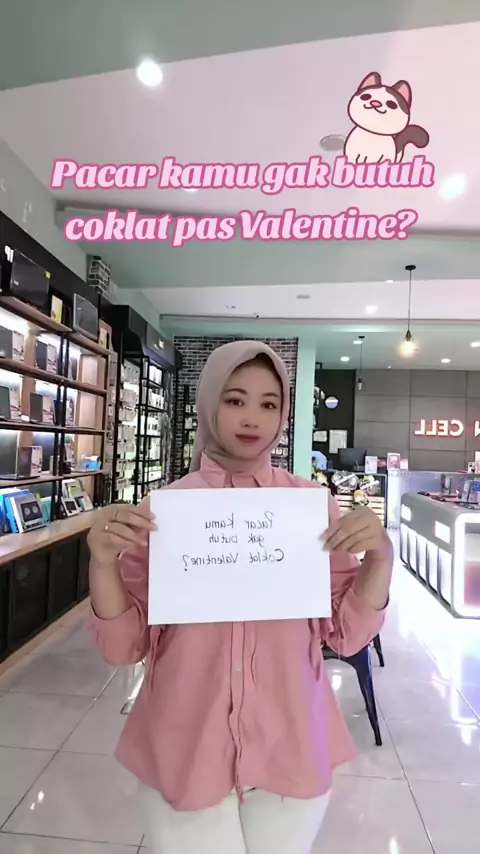 Pacar kamu gak butuh
coklat pas Valentine?
Pacar kamu
gak butuh
Coklat Valentine?
N CELL